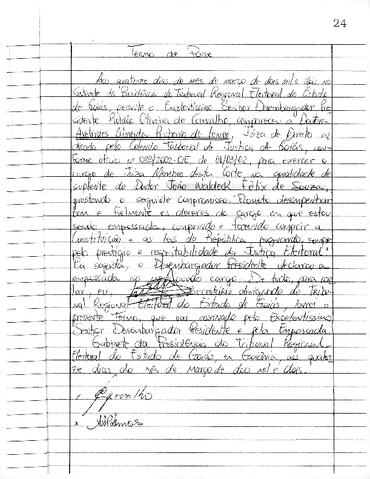 24
Termo de Posse
Aos quatorze dias do mês de março de dois mil e dois, no
Gabinete da Presidência do Tribunal Regional Eleitoral do Estado
de Goiás, perante o Excelentíssimo Senhor Desembargador Pre
sidente Oliveira de Carvalho, compareceu a Doutora
Avelirdes Almeida de Lemos, Juíza de Direito in
dicada pelo Colendo Tribunal de Justiça de Goiás, con
forme ofício nº 089/2002-OE, de 04/03/02, para exercer o
cargo de Juíza Membro desta Corte, na qualidade de
suplente do Doutor João Waldeck Félix de Sousa,
prestando o seguinte compromisso: "Prometo desempenhar
bem e fielmente os deveres do cargo em que estou
sendo empossada, cumprindo e fazendo cumprir a
Constituição e as leis da República, pugnando, sempre,
pelo prestígio e respeitabilidade da Justiça Eleitoral."
Em seguida, o Desembargador Presidente declarou-a
empossada no cargo. De tudo, para cons
tar, eu, Secretário do Tribu
nal Regional Eleitoral do Estado de Goiás, lavrei o
presente Termo, que vai assinado pelo Excelentíssimo
Senhor Desembargador Presidente e pela Empossada.
Gabinete da Presidência do Tribunal Regional
Eleitoral do Estado de Goiás, em Goiânia, aos quator
ze dias do mês de março de dois mil e dois.
x
x